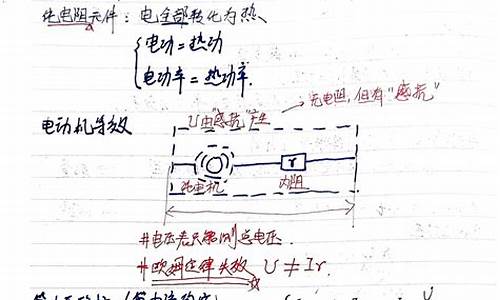 纯电阻元件：电全部转化为热、
电功=热功
电功率=热功率.
无电阻,但有"感抗"
U由"感抗"产生
电动机等效
r
纯电机 内阻
#电压表只能测总电压.
#欧姆定律失效 U≠Ir.